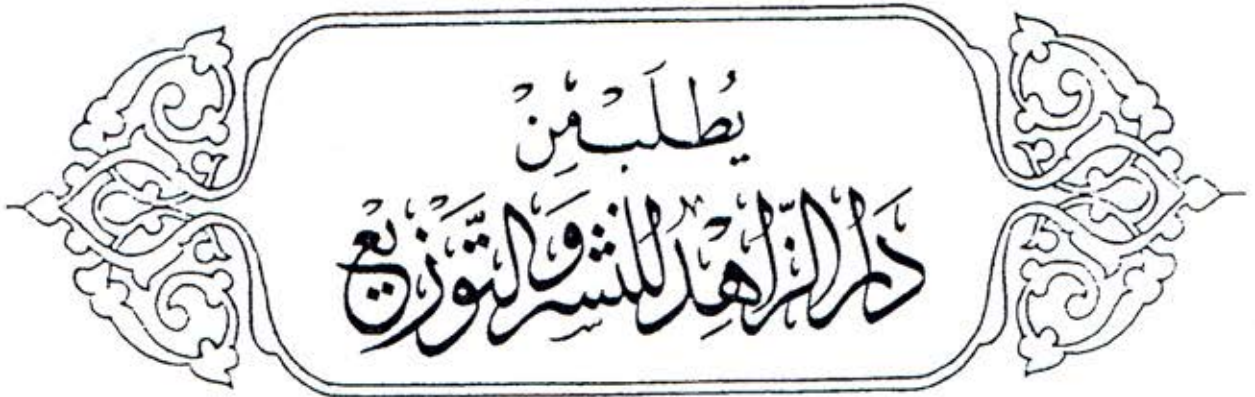 يُطْلَبُ مِنْ
دَارُ الزَّاهِدِ لِلنَّشْرِ وَالتَّوْزِيْعِ